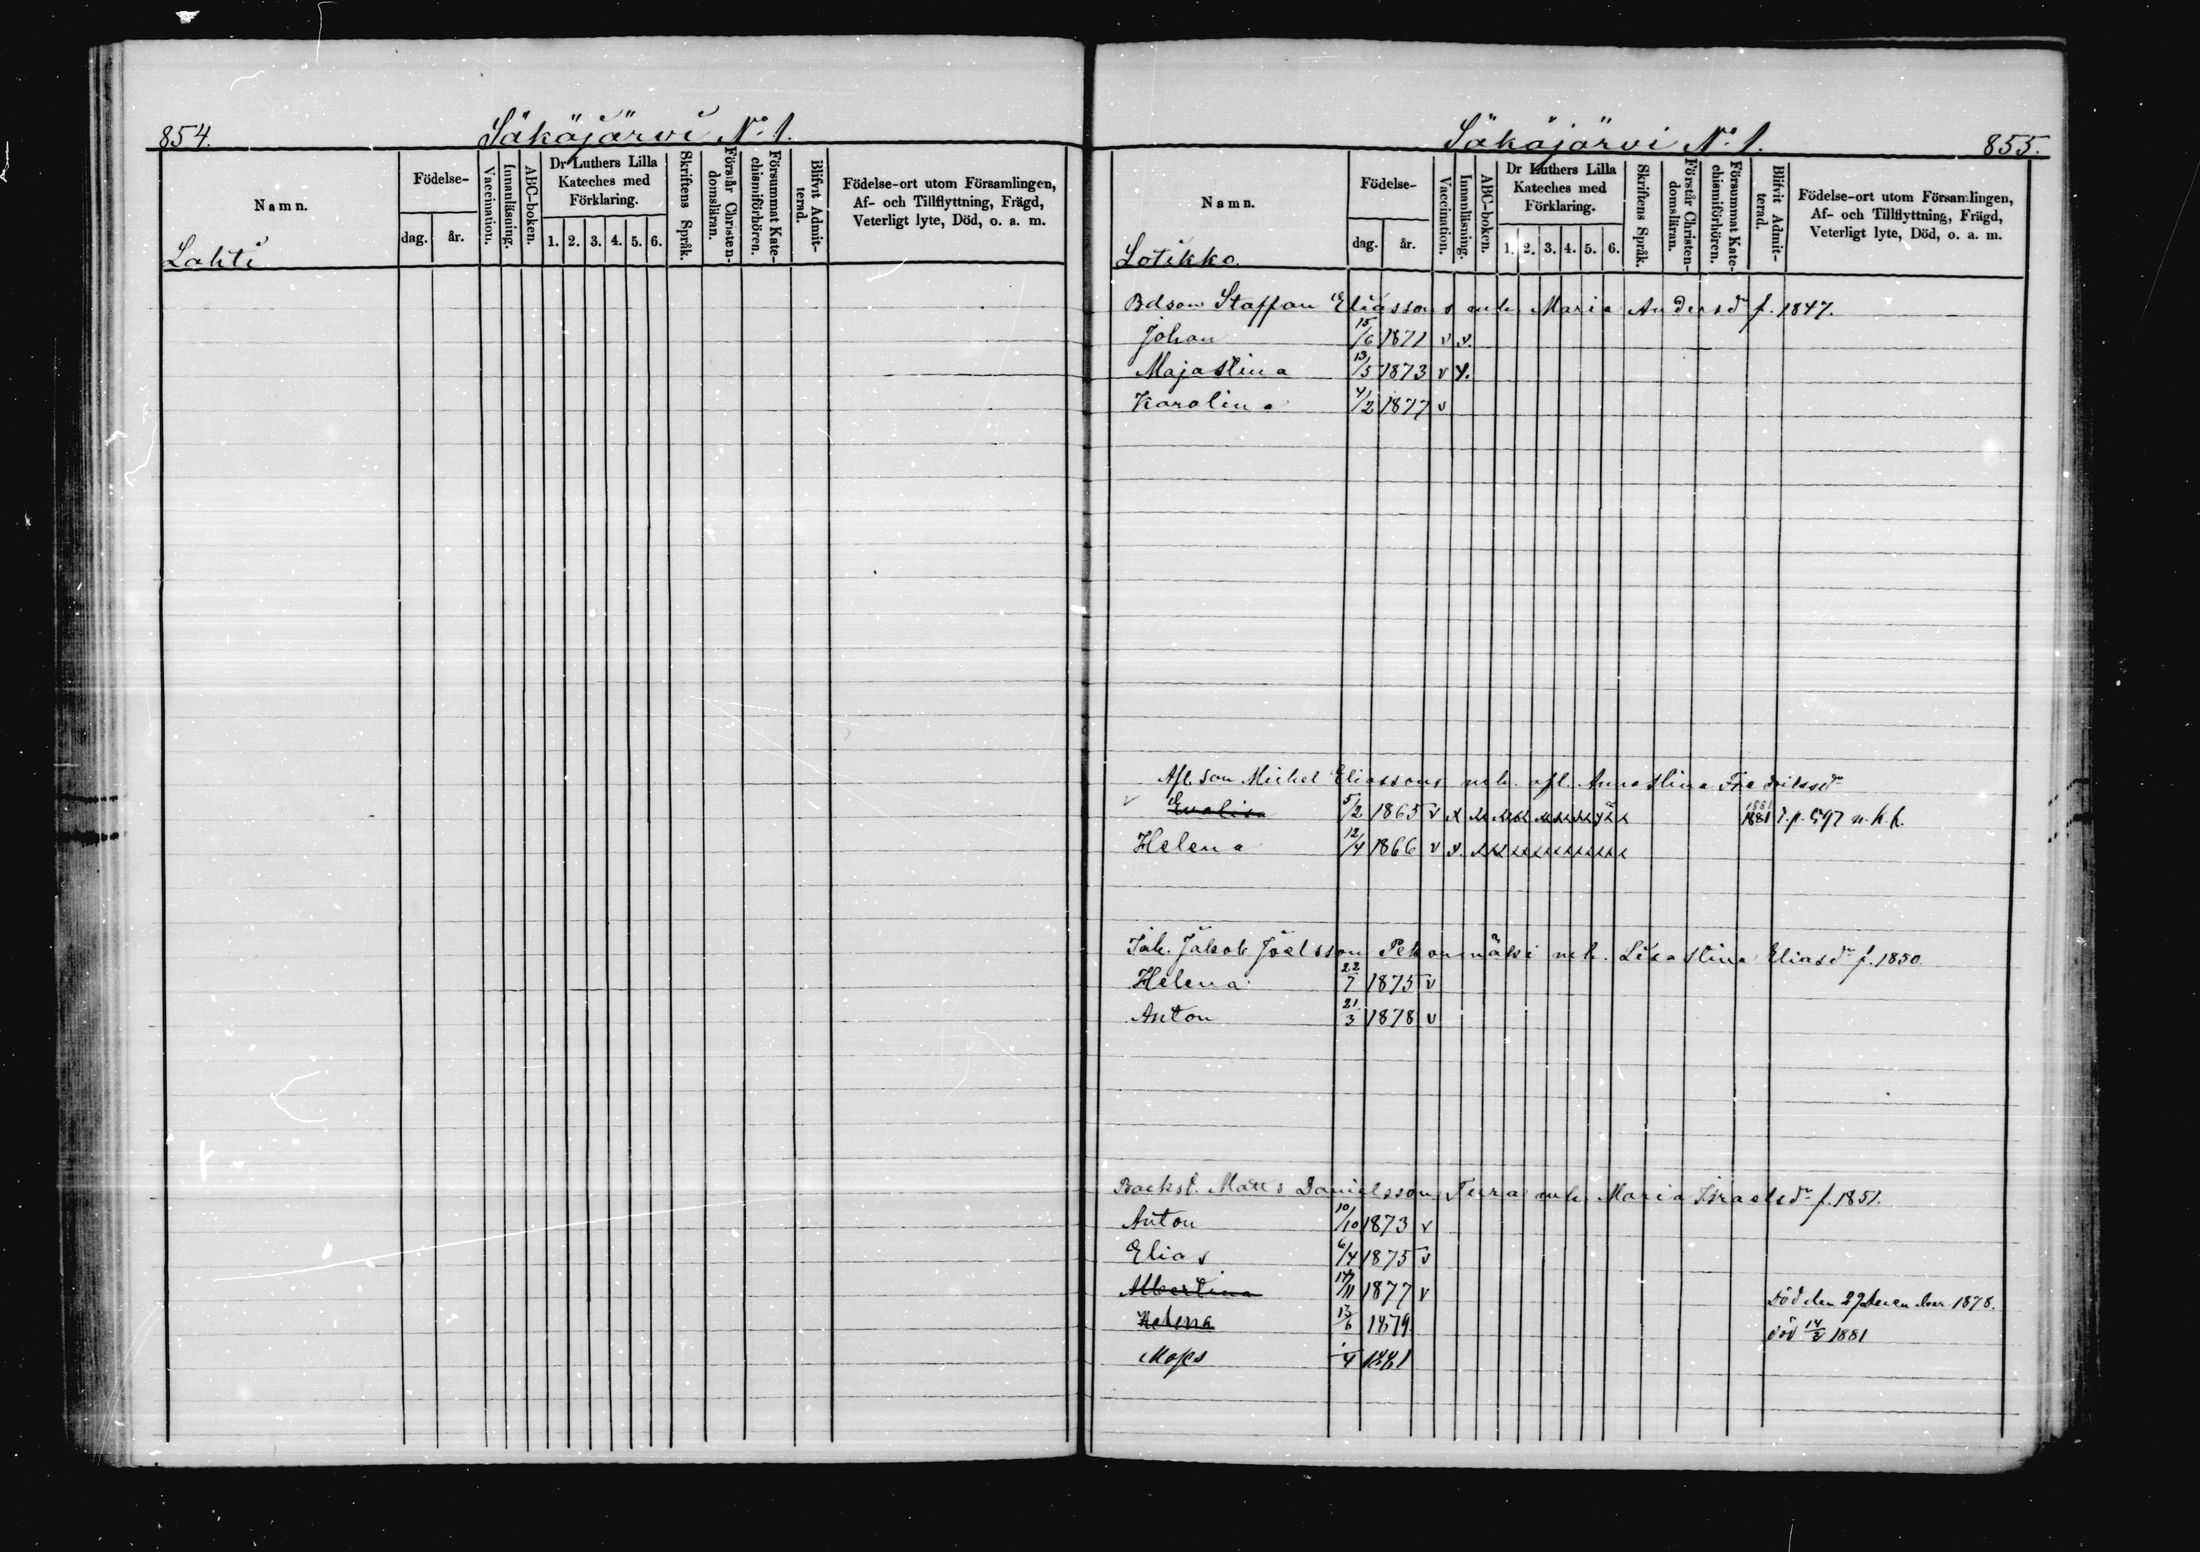 854. Säkäjärvi No 1.
Namn.
Födelse-
dag. år.
Vaccination.
Innanläsning.
ABC-boken.
Dr Luthers Lilla
Kateches med
Förklaring.
1. 2. 3. 4. 5. 6.
Skriftens Språk.
Förstår Christen-
domsläran.
Försummat Kate-
chismiförhören.
Blifvit Admit-
terad.
Födelse-ort utom Församlingen,
Af- och Tillflyttning, Frägd,
Veterligt lyte, Död, o. a. m.
Lahti
Säkäjärvi No 1. 855.
Namn.
Födelse-
dag. år.
Vaccination.
Innanläsning.
ABC-boken.
Dr Luthers Lilla
Kateches med
Förklaring.
1. 2. 3. 4. 5. 6.
Skriftens Språk.
Förstår Christen-
domsläran.
Försummat Kate-
chismiförhören.
Blifvit Admit-
terad.
Födelse-ort utom Församlingen,
Af- och Tillflyttning, Frägd,
Veterligt lyte, Död, o. a. m.
Lotikko.
Bdson Staffan Eliassons mh. Maria Andersdr f. 1847.
Johan 15/6 1871 v v.
Majastina 13/5 1873 v v.
Karolina 4/2 1877 v
Afl. son Michel Eliassons mh. afl. Annastina Fredriksdr
v Evalisa 5/2 1865 v x 1881 1881 i.p. 597 n.k.b.
Helena 12/4 1866 v v.
Inh. Jakob Joelsson Pekonmäki mh. Lisastina Eliasdr f. 1850.
Helena 22/7 1875 v
Anton 21/3 1878 v
Backst. Matts Danielsson Turra mh. Maria Israelsdr f. 1851.
Anton 10/10 1873 v
Elias 6/4 1875 v
Albertina 17/11 1877 v Död den 29 December 1878.
Helena 13/6 1879 död 14/2 1881
Moses /4 1881